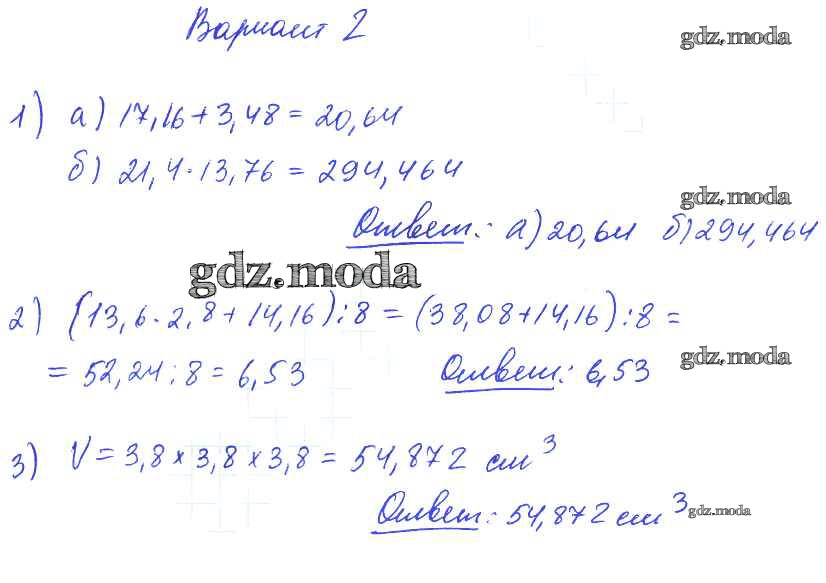 Вариант 2
gdz.moda
1) а) 17,16 + 3,48 = 20,64
б) 21,4 · 13,76 = 294,464
gdz.moda
Ответ: а) 20,64 б) 294,464
gdz.moda
2) (13,6 · 2,8 + 14,16) : 8 = (38,08 + 14,16) : 8 =
= 52,24 : 8 = 6,53 Ответ: 6,53
gdz.moda
3) V = 3,8 × 3,8 × 3,8 = 54,872 см³
Ответ: 54,872 см³
gdz.moda